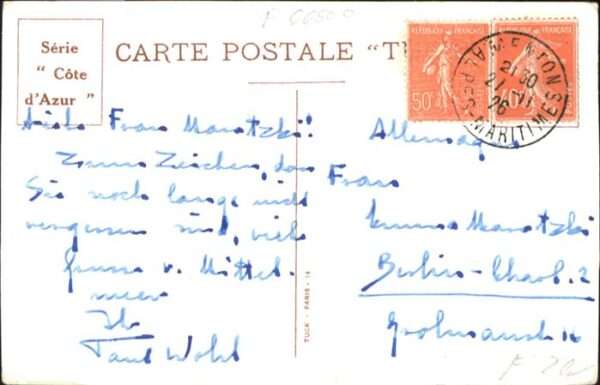 F 66500
Série
" Côte
d'Azur "
CARTE POSTALE "T
RÉPUBLIQUE FRANÇAISE
50c
MENTON
21 30
21 VI
26
ALPES-MARITIMES
Liebe Frau Maretzki!
Zum Zeichen, dass
Sie noch lange nicht
vergessen sind, viele
Grüsse v. Mittel-
meer
Ihr
Paul Wohl
TUCK - PARIS - 14
Allemagne
Frau
Maretzki
Berlin-Charl. 2
Grolmanstr 16